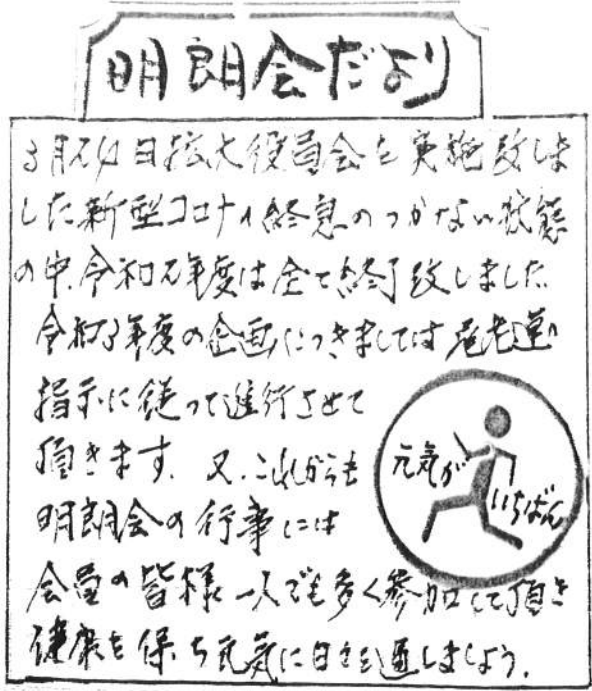 明朗会だより
3月24日拡大役員会を実施致しま
した新型コロナの終息のつかない状態
の中、令和2年度は全て終了致しました
令和3年度の企画につきましては老連の
指示に従って進行させて
頂きます。又、これからも
明朗会の行事には
会員の皆様一人でも多く参加して頂き
健康を保ち元気に日々を過しましょう。
元気が
いちばん